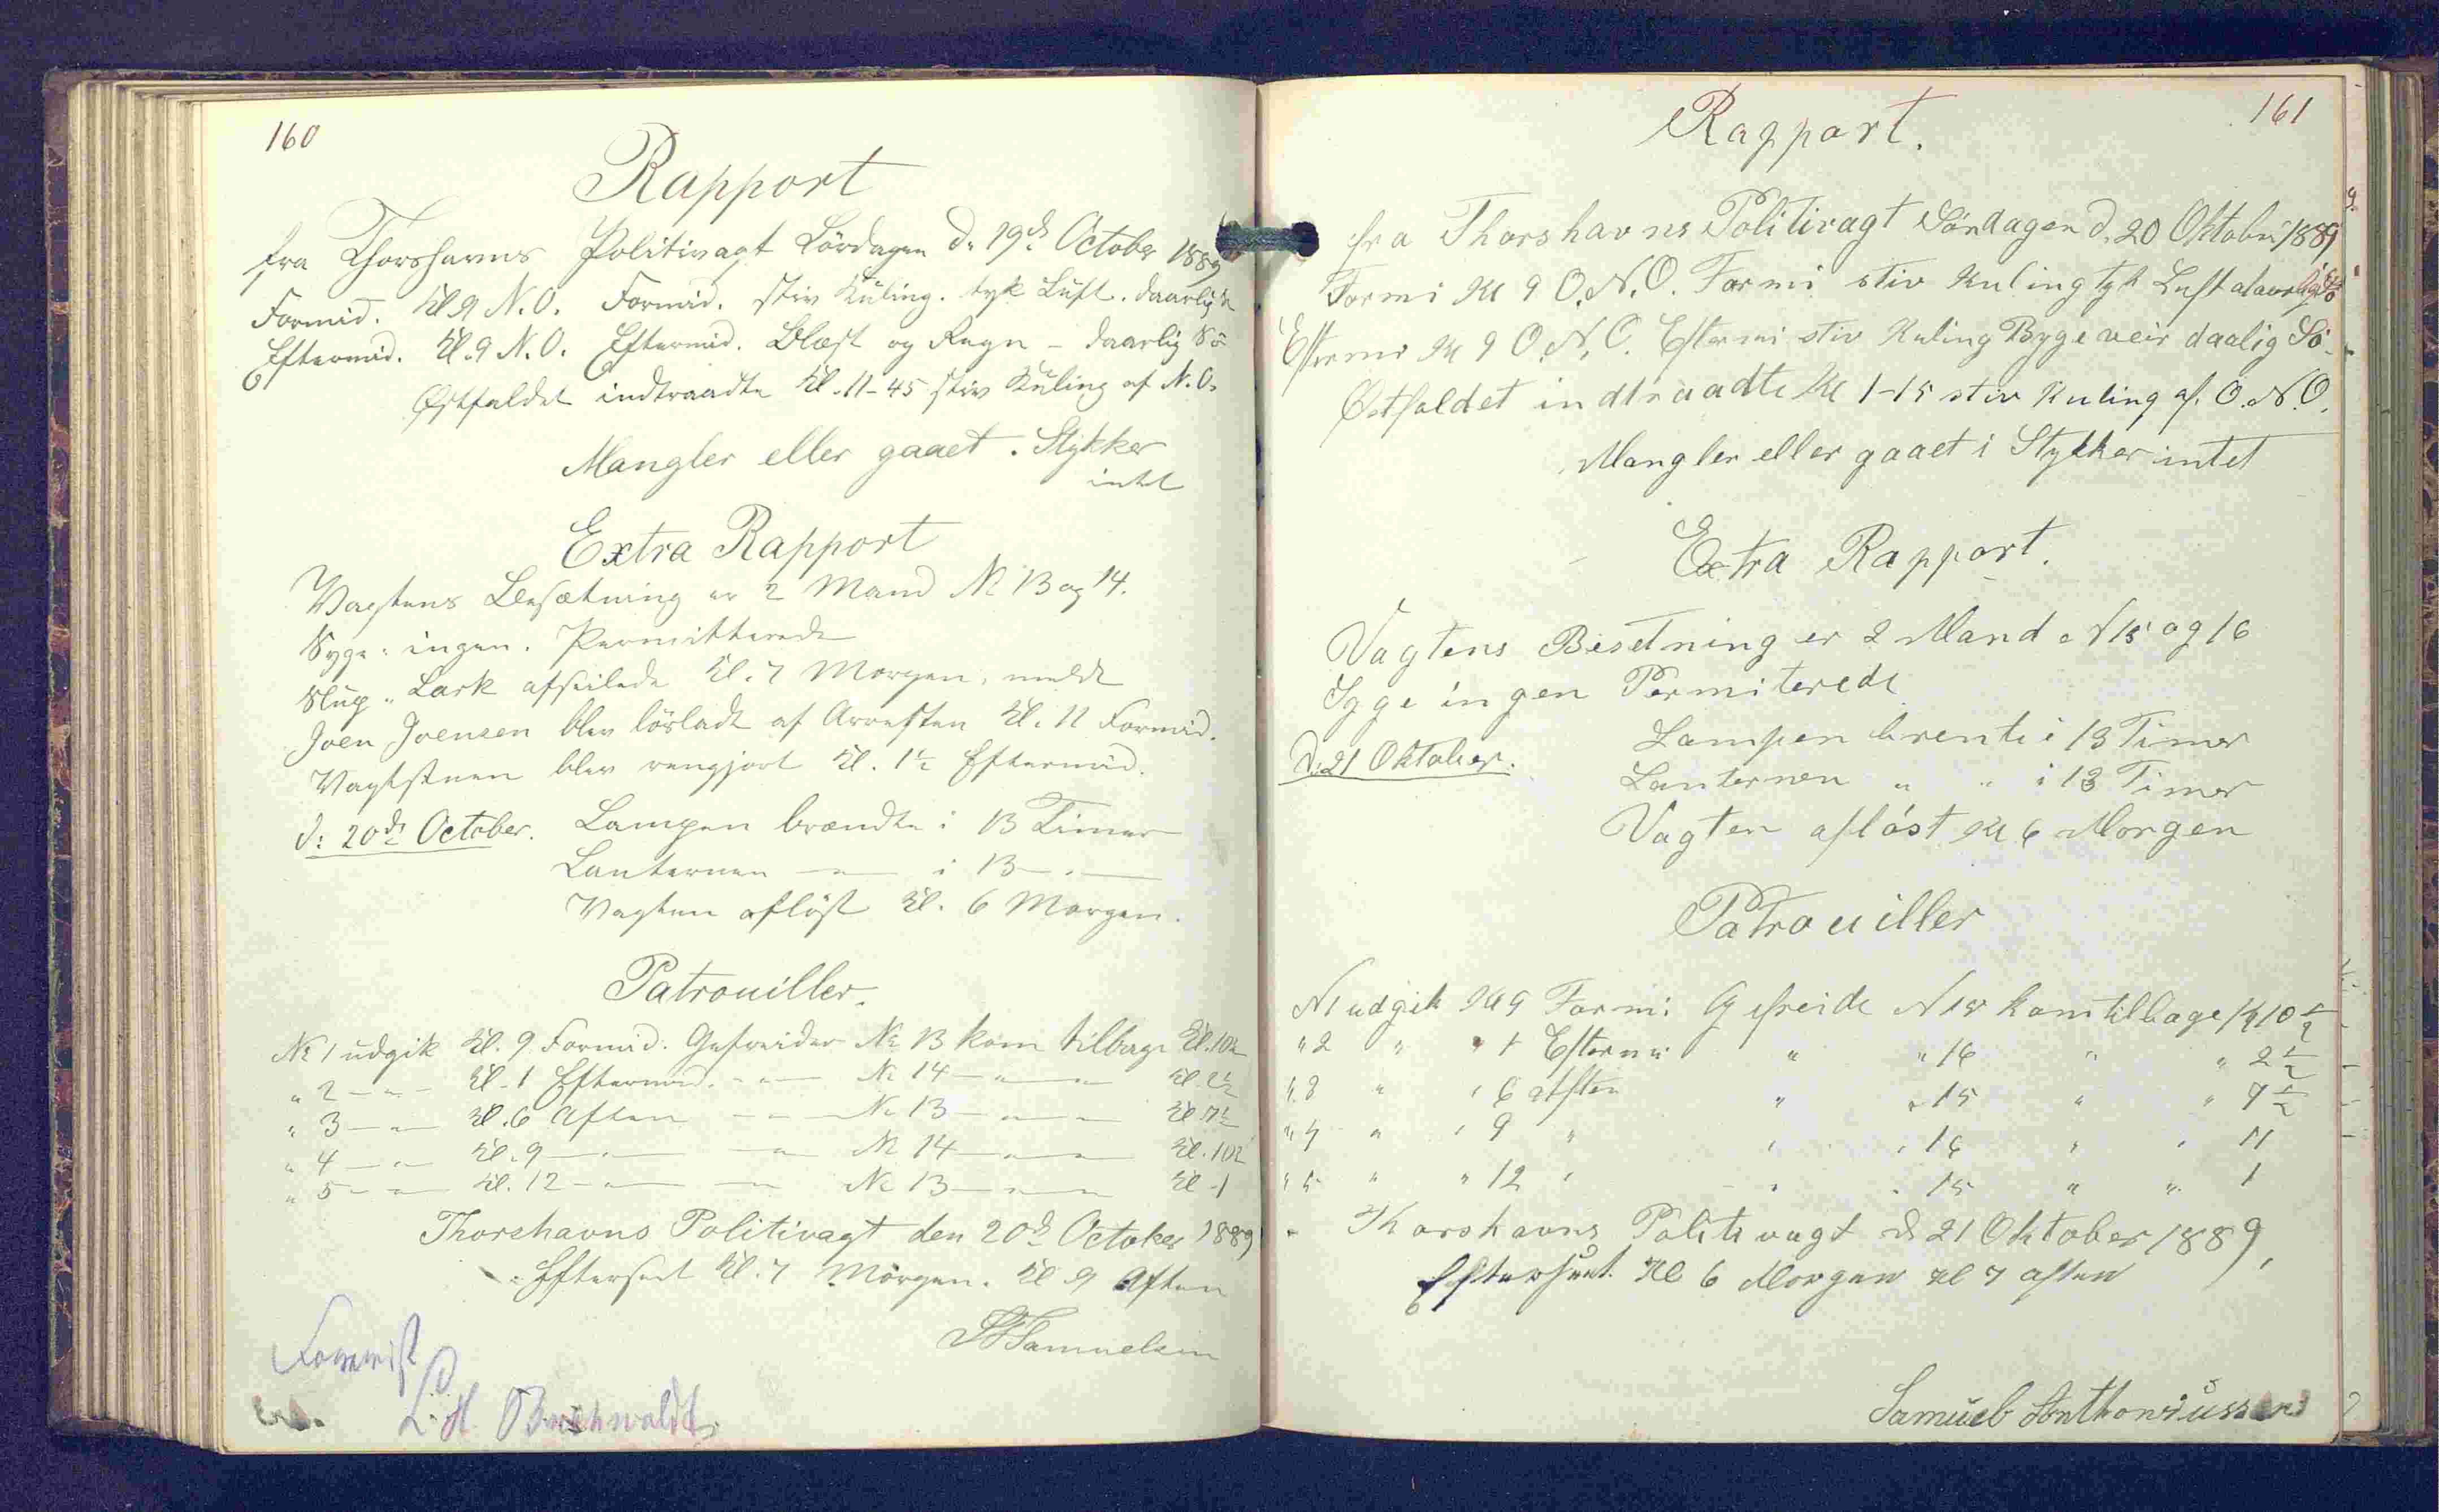 160
Rapport
fra Thorshavns Politivagt Lördagen d. 19d. October 1889
Formid. Kl. 9 N.O. Formid. stiv Kuling. tyk Luft. daarlig Sö
Eftermid. Kl. 9 N.O. Eftermid. Blæst og Regn - daarlig Sö
Østfaldet indtraadte Kl. 11-45 stiv Kuling af N.O.
Mangler eller gaaet i Stykker
intet
Extra Rapport
Vagtens Besætning er 2 Mand No 13 og 14.
Syge: ingen. Permitterede
Slup " Lark afseilede Kl. 7 Morgen,
Joen Joensen blev lösladt af Arresten Kl. 11 Formid.
Vagtstuen blev rengjort Kl. 1½ Eftermid.
d: 20de October. Lampen brændte i 13 Timer
Lanternen — " — i 13 — " —
Vagten aflöst Kl. 6 Morgen.
Patrouiller.
No 1 udgik Kl. 9 Formid. Gefreider No 13 kom tilbage Kl. 10½
" 2 — " — Kl. 1 Eftermid. — " — No 14 — " — " — Kl. 2½
" 3 — " — Kl. 6 Aften — " — No 13 — " — " — Kl. 7½
" 4 — " — Kl. 9 — " — — " — No 14 — " — " — Kl. 10½
" 5 — " — Kl. 12 — " — — " — No 13 — " — " — Kl. 1
Thorshavns Politivagt den 20d. October 1889
Efterseet Kl. 7 Morgen. Kl. 9 Aften
Samuelsen
Forevist
L. H. Buchwaldt
161
Rapport.
fra Thorshavns Politivagt Söndagen d. 20 Oktober 1889
Formi Kl 9 O.N.O. Formi stiv Kuling tyk Luft
Eftermi Kl 9 O.N.O. Eftermi stiv Kuling Bygeveir daalig Sö
Østfaldet indtraadte Kl 1-15 stiv Kuling af O.N.O.
Mangler eller gaaet i Stykker intet
Extra Rapport.
Vagtens Besetning er 2 Mand N 15 og 16
Syge ingen Permiterede
Lampen brente i 13 Timer
d. 21 Oktober.
Lanternen " " i 13 Timer
Vagten aflöst Kl 6 Morgen
Patrouiller
N 1 udgik Kl 9 Formi Gefreide N 15 kom tilbage Kl 10½
" 2 " " 1 Eftermi " " 16 " " 2½
" 3 " " 6 Aften " " 15 " " 7½
" 4 " " 9 " " " 16 " " 11
" 5 " " 12 " " " 15 " " 1
Thorshavns Politivagt d 21 Oktober 1889,
Efterseet. Kl 6 Morgen Kl 7 aften
Samuel Anthoniussen